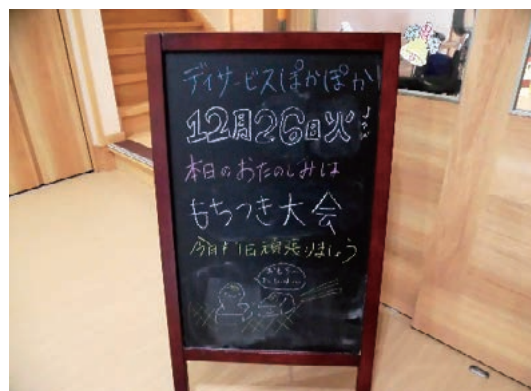 デイサービスぽかぽか
12月26日火
本日のおたのしみは
もちつき大会
今日も1日頑張りましょう